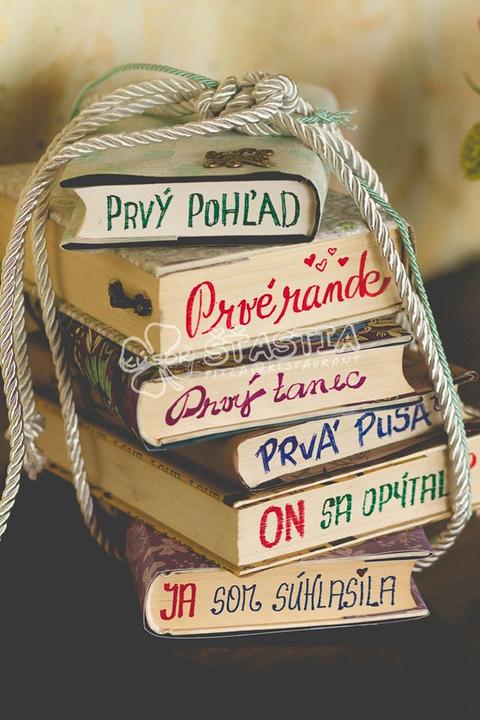 PRVÝ POHĽAD
Prvé rande
KÚSOK
ŠŤASTIA
PIZZA & RESTAURANT
Prvý tanec
PRVÁ PUSA
ON SA OPÝTAL
JA SOM SÚHLASILA